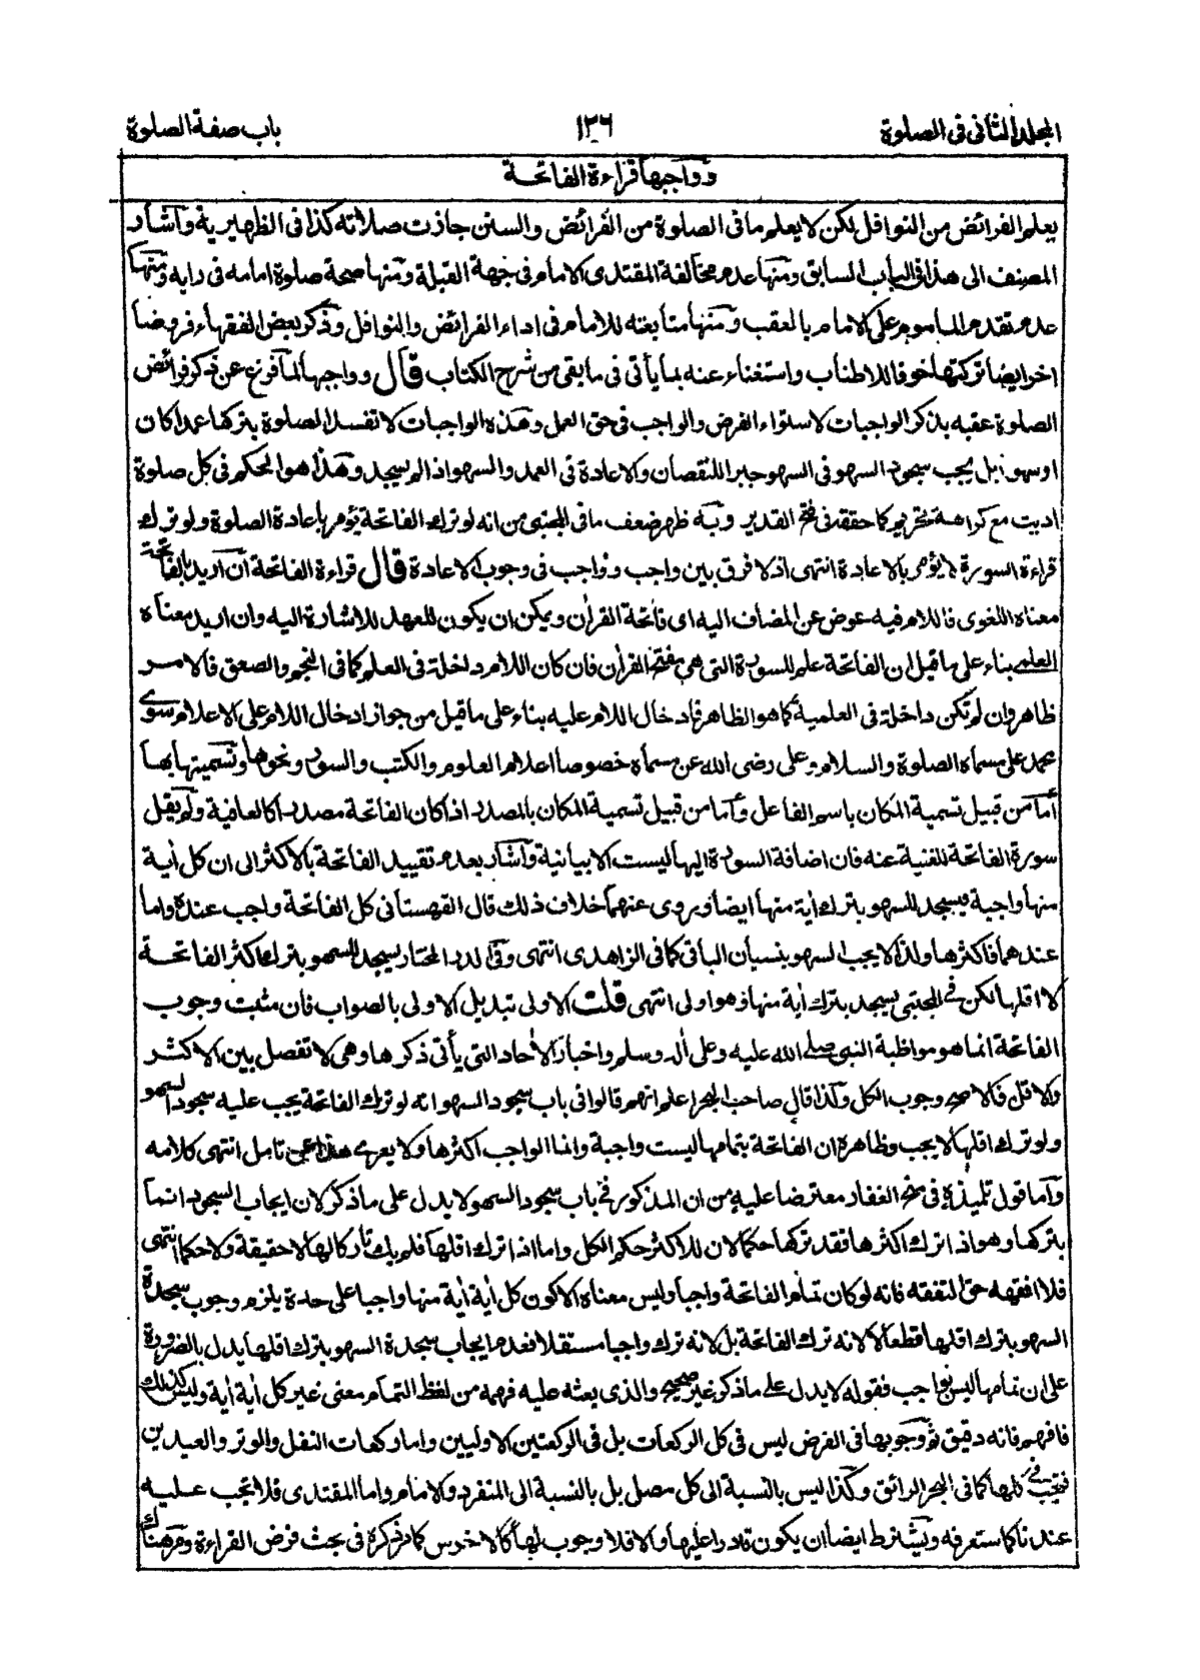 المجلد الثانى فى الصلوة ١٢٦ باب صفة الصلوة
و واجبها قراءة الفاتحة
يعلم الفرائض من النوافل لكن لا يعلم ما فى الصلوة من الفرائض والسنن جازت صلاته كذا فى الظهيرية وآشار
المصنف الى هذا فى الباب السابق ومنها عدم مخالفة المقتدى الامام فى جهة القبلة ومنها صحة صلوة امامه فى رايه ومنها
عدم تقدم الماموم على الامام بالعقب ومنها متابعته للامام فى اداء الفرائض والنوافل وذكر بعض الفقهاء فروضا
اخر ايضا تركتها خوفا للاطناب واستغناء عنه بما يأتى فى ما بقى من شرح الكتاب قال وواجبها لما فرغ عن ذكر فرائض
الصلوة عقبه بذكر الواجبات لاستواء الفرض والواجب فى حق العمل وهذه الواجبات لا تفسد الصلوة بتركها عمدا كان
او سهوا بل يجب سجود السهو فى السهو جبرا للنقصان والاعادة فى العمد والسهو اذا لم يسجد وهذا هو الحكم فى كل صلوة
اديت مع كراهة تحريم كما حققه فى فتح القدير وبه ظهر ضعف ما فى المجتبى من انه لو ترك الفاتحة يؤمر باعادة الصلوة ولو ترك
قراءة السورة لا يؤمر بالاعادة انتهى اذ لا فرق بين واجب وواجب فى وجوب الاعادة قال قراءة الفاتحة ان اريد بالفاتحة
معناه اللغوى فاللام فيه عوض عن المضاف اليه اى فاتحة القران ويمكن ان يكون للعهد للاشارة اليه وان اريد معناه
العلمى بناء على ما قيل ان الفاتحة علم للسورة التى هى مفتتح القران فان كان اللام داخلة فى العلم كما فى النجم والصعق فالامر
ظاهر وان لم تكن داخلة فى العلمية كما هو الظاهر فادخال اللام عليه بناء على ما قيل من جواز ادخال اللام على الاعلام سوى
محمد على مسماه الصلوة والسلام وعلى رضى الله عن مسماه خصوصا اعلام العلوم والكتب والسور ونحوها وتسميتها بها
اما من قبيل تسمية المكان باسم الفاعل واما من قبيل تسمية المكان بالمصدر اذا كان الفاتحة مصدرا كالعافية ولم يقل
سورة الفاتحة للغنية عنه فان اضافة السورة اليها ليست الا بيانية وآشار بعدم تقييد الفاتحة بالاكثر الى ان كل اية
منها واجبة فيسجد للسهو بترك اية منها ايضا ويروى عنهما خلاف ذلك قال القهستانى كل الفاتحة واجب عنده واما
عندهما فاكثرها ولذا لا يجب السهو بنسيان الباقى كما فى الزاهدى انتهى وفى الدر المختار يسجد للسهو بترك اكثر الفاتحة
لا اقلها لكن فى المجتبى يسجد بترك اية منها وهو اولى انتهى قلت الاولى تبديل الاولى بالصواب فان مثبت وجوب
الفاتحة انما هو مواظبة النبى صلى الله عليه وعلى اله وسلم واخبار الاحاد التى يأتى ذكرها وهى لا تفصل بين الاكثر
والاقل فالاصح وجوب الكل وكذا قال صاحب البحر اعلم انهم قالوا فى باب سجود السهو انه لو ترك الفاتحة يجب عليه سجود السهو
ولو ترك اقلها لا يجب وظاهره ان الفاتحة بتمامها ليست واجبة وانما الواجب اكثرها ولا يعرى هذا عن تامل انتهى كلامه
واما قول تلميذه فى منح الغفار معترضا عليه من ان المذكور فى باب سجود السهو لا يدل على ما ذكر لان ايجاب السجود انما
بتركها وهو اذا ترك اكثرها فقد تركها حكما لان للاكثر حكم الكل واما اذا ترك اقلها فلم يك تاركا لها لا حقيقة ولا حكما انتهى
فلا افقهه حق التفقه فانه لو كان تمام الفاتحة واجبا وليس معناه الا كون كل اية اية منها واجبا على حدة يلزم وجوب سجدة
السهو بترك اقلها قطعا لا لانه ترك الفاتحة بل لانه ترك واجبا مستقلا فعدم ايجاب سجدة السهو بترك اقلها يدل بالضرورة
على ان تمامها ليس بواجب فقوله لا يدل على ما ذكر غير صحيح والذى بعثه عليه فهمه من لفظ التمام معنى غير كل اية اية وليس كذلك
فافهم فانه دقيق ثم وجوبها فى الفرض ليس فى كل الركعات بل فى الركعتين الاوليين واما ركعات النفل والوتر والعيدين
فتجب فى كلها كما فى البحر الرائق وكذا ليس بالنسبة الى كل مصل بل بالنسبة الى المنفرد والامام واما المقتدى فلا تجب عليه
عندنا كما ستعرفه ويشترط ايضا ان يكون قادرا عليها والا فلا وجوب لها كالاخرس كما مر ذكره فى بحث فرض القراءة ومر هناك